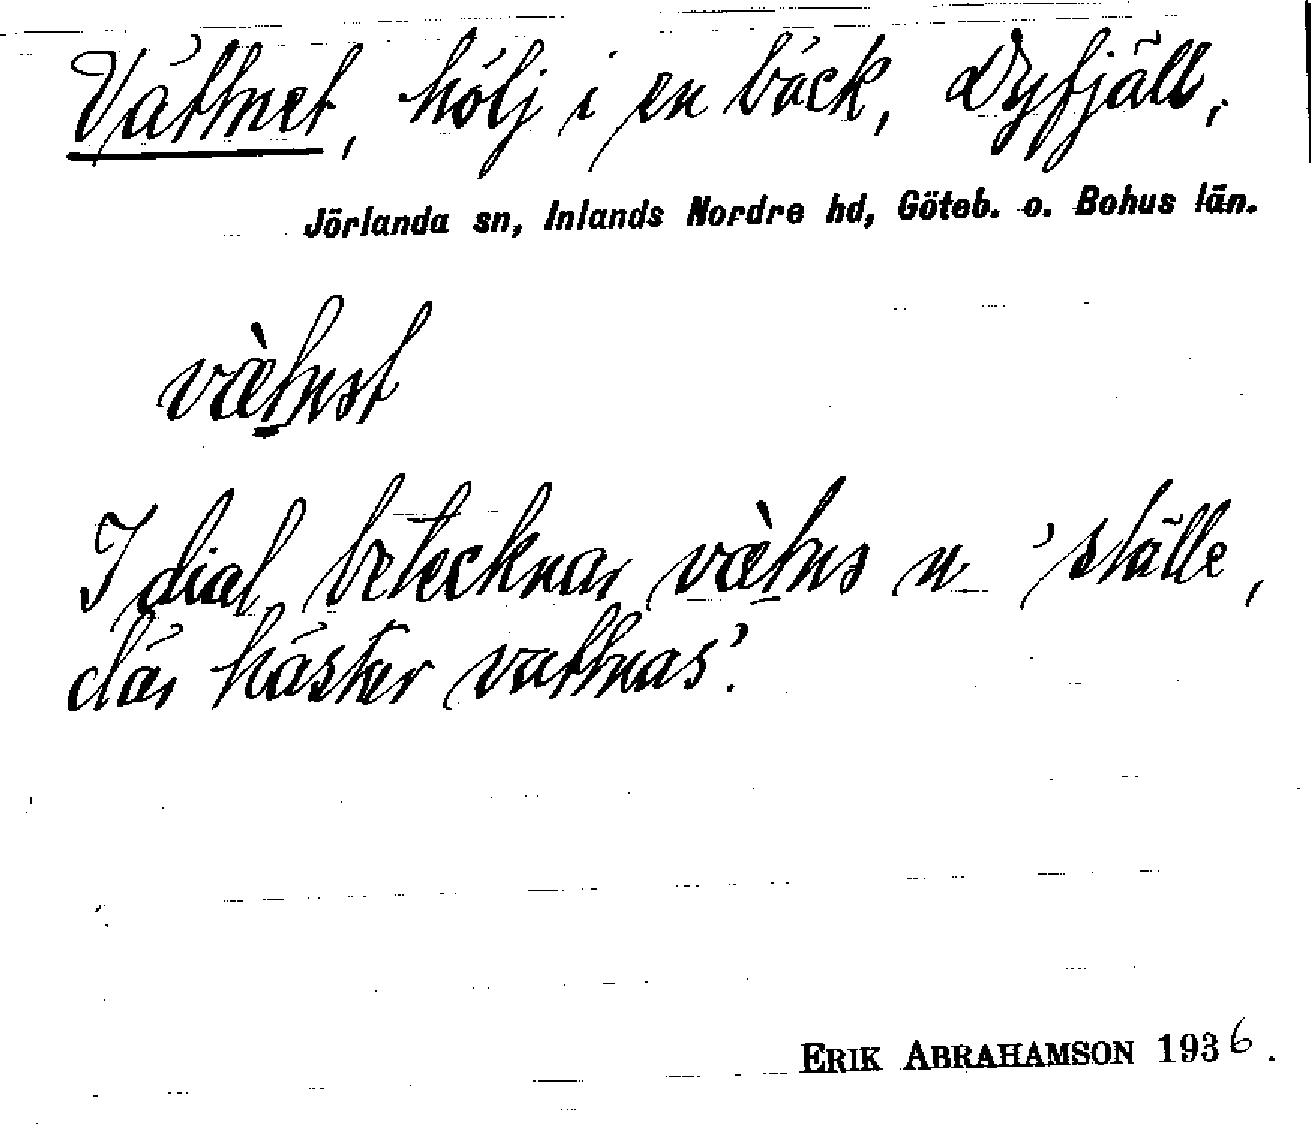 Vättnet, hölj i en bäck, Dyfjäll,
Jörlanda sn, Inlands Nordre hd, Göteb. o. Bohus län.
væ̀tnst
I dial betecknar væ̀tns n 'ställe,
där häster vattnas'.
ERIK ABRAHAMSON 1936.